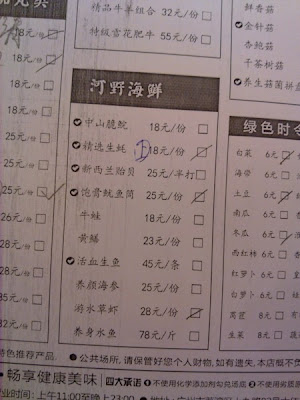 精品牛羊组合 32元/份
特级雪花肥牛 55元/份
18元/份
18元/份
18元/份
25元/份
25元/份
25元/份
26元/份
28元/份
35元/份
28元/份
32元/份
河野海鲜
中山脆鲩 18元/份
精选生蚝 ① 18元/份
新西兰贻贝 25元/半打
饱香鱿鱼筒 25元/份
牛蛙 18元/份
黄鳝 23元/份
活血生鱼 45元/条
养颜海参 25元/份
游水草虾 28元/份
养身水鱼 78元/斤
鲜香菇
金针菇
杏鲍菇
干茶树菇
养生菇菌拼盘
绿色时令
白菜 6元
海带 6元
土豆 6元
南瓜 6元
冬瓜 6元
西红柿 6元
红萝卜 6元
白萝卜 6元
莴笋 8元
生菜 8元
特色推荐产品.
公共场所,请保管好您个人财物,如有遗失,本店恕不负
畅享健康美味
四大承诺
❶不使用化学添加剂勾兑汤底 ❷不使用
时间:上午11:00至晚上